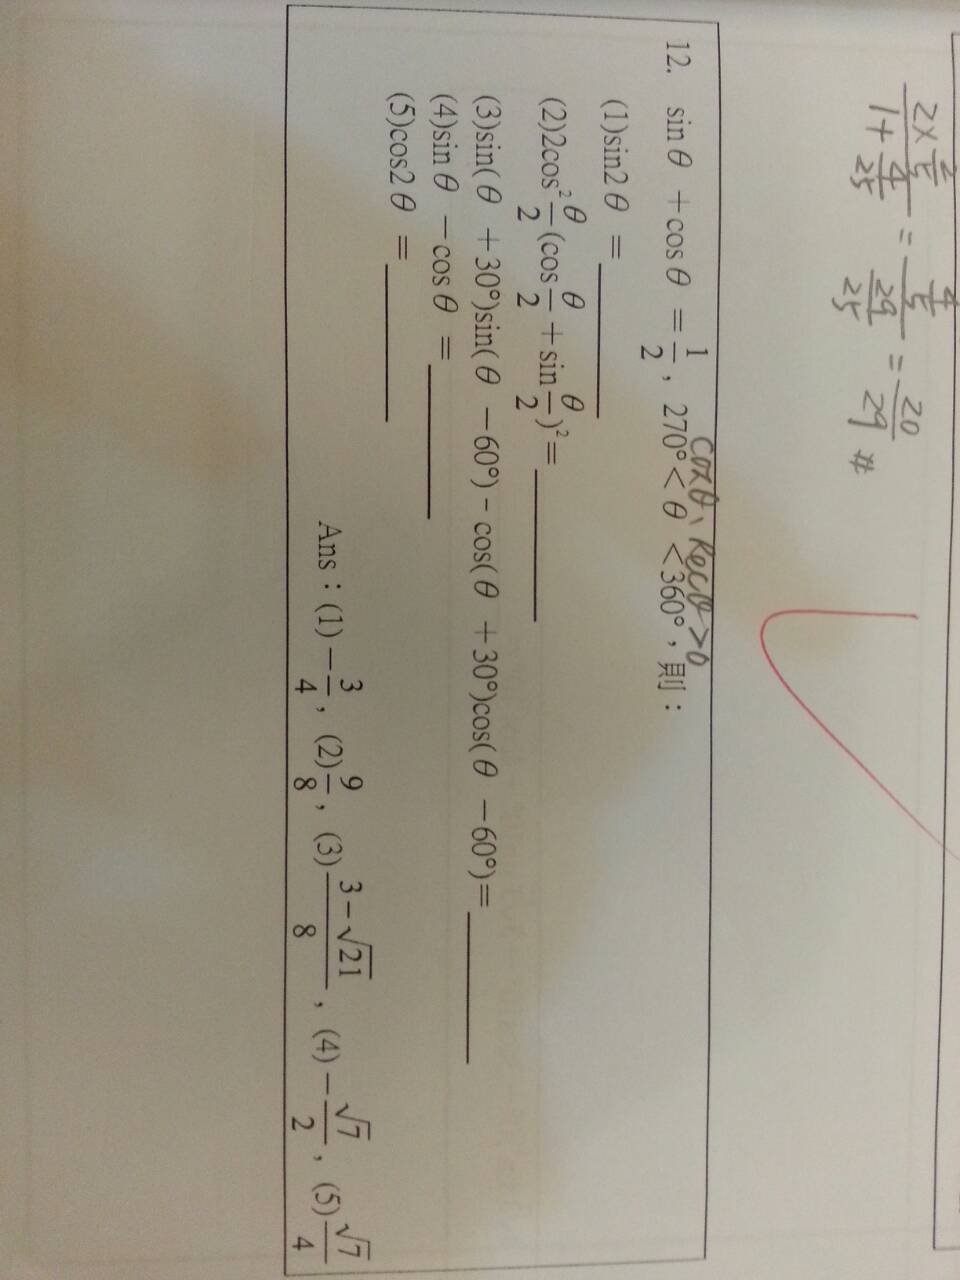 2×2/5 / 1+4/25 = 4/5 / 29/25 = 20/29 #
cosθ、secθ>0
12. sinθ+cosθ=1/2，270°<θ<360°，則：
(1)sin2θ=______
(2)2cos²θ/2(cosθ/2+sinθ/2)²=______
(3)sin(θ+30°)sin(θ−60°)−cos(θ+30°)cos(θ−60°)=______
(4)sinθ−cosθ=______
(5)cos2θ=______
Ans：(1)−3/4，(2)9/8，(3)3−√21/8，(4)−√7/2，(5)√7/4